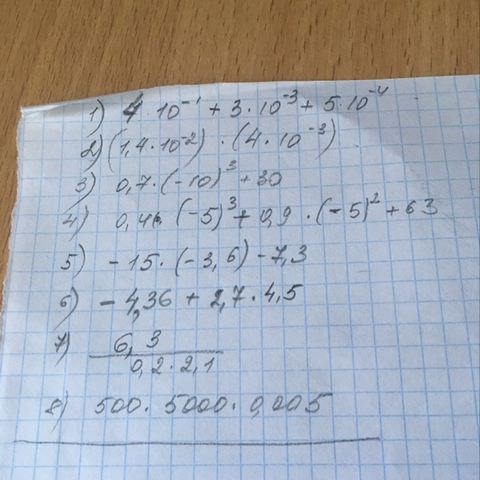 1) 4 · 10⁻¹ + 3 · 10⁻³ + 5 · 10⁻⁴
2) (1,4 · 10⁻²) · (4 · 10⁻³)
3) 0,7 · (-10)³ + 30
4) 0,4 · (-5)³ + 0,9 · (-5)² + 63
5) -15 · (-3,6) - 7,3
6) -4,36 + 2,7 · 4,5
7) 6,3
0,2 · 2,1
8) 500 · 5000 · 0,005